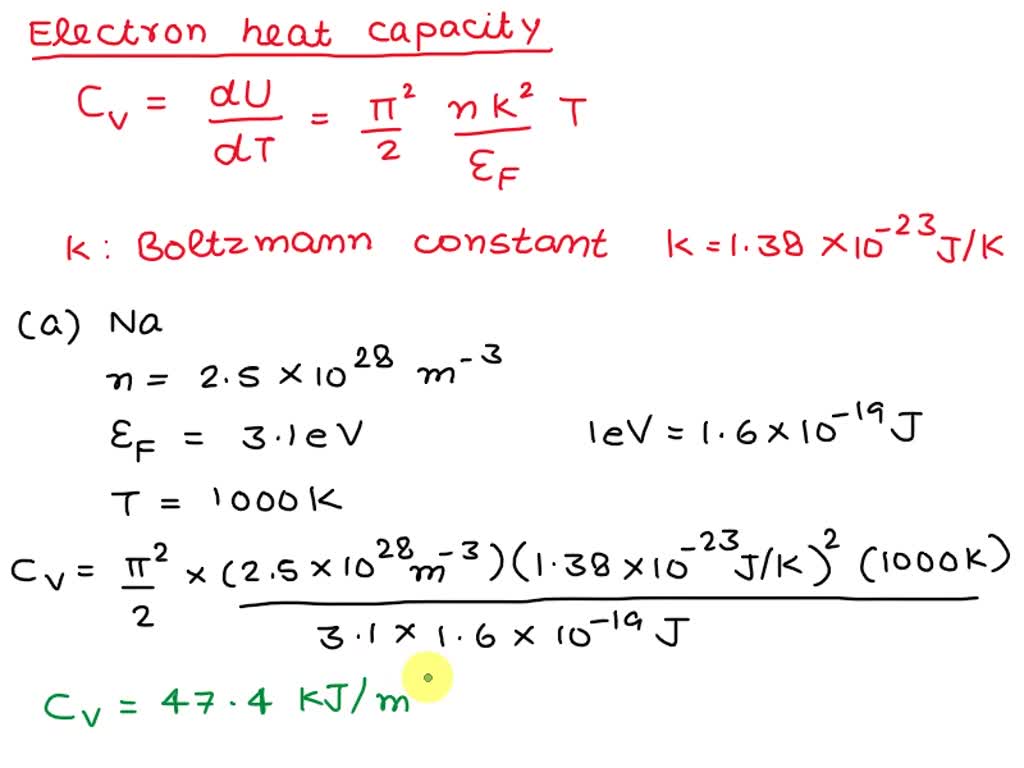 Electron heat capacity
C_V = dU/dT = π²/2 nk²/ε_F T
k : Boltzmann constant k = 1.38 × 10⁻²³ J/K
(a) Na
n = 2.5 × 10²⁸ m⁻³
ε_F = 3.1 eV 1eV = 1.6 × 10⁻¹⁹ J
T = 1000 K
C_V = π²/2 × (2.5 × 10²⁸ m⁻³)(1.38 × 10⁻²³ J/K)² (1000K) / 3.1 × 1.6 × 10⁻¹⁹ J
C_V = 47.4 KJ/m